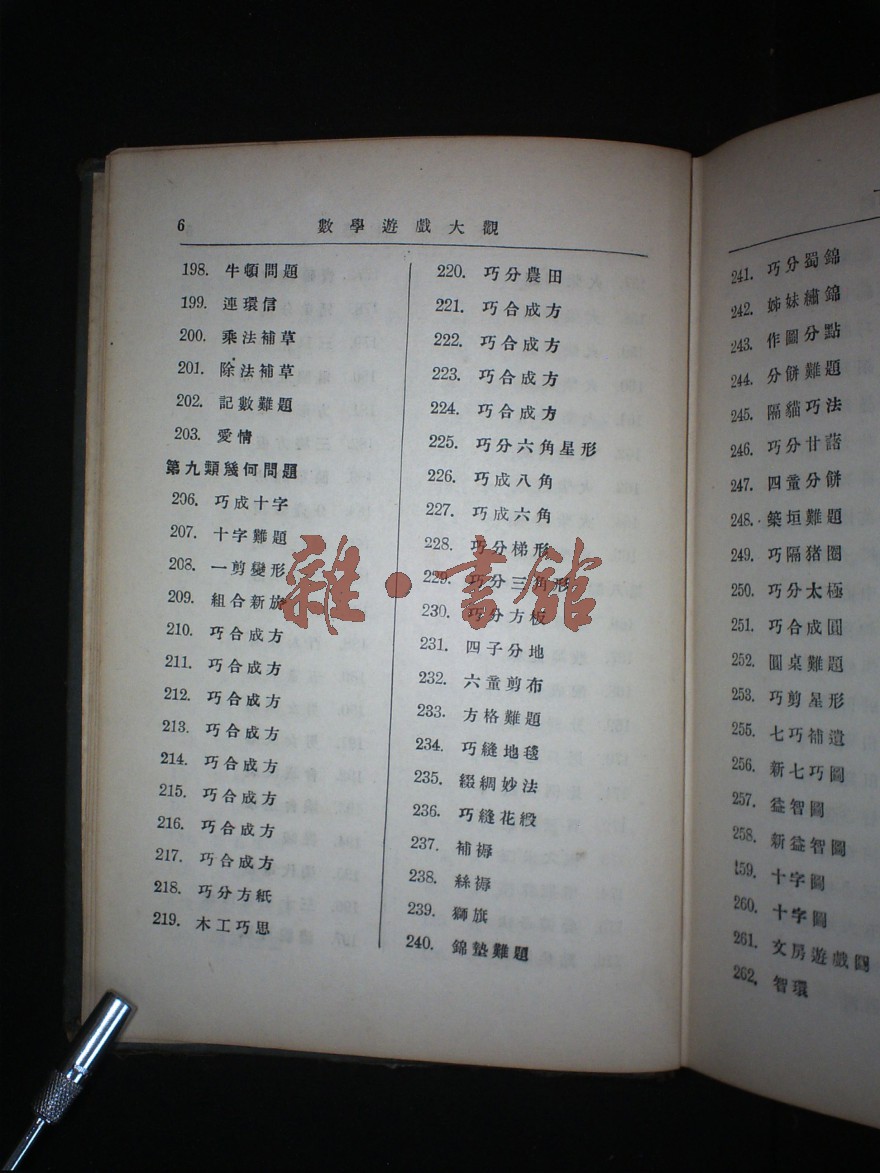 6 數學遊戲大觀
198. 牛頓問題
199. 連環信
200. 乘法補草
201. 除法補草
202. 記數難題
203. 愛情
第九類幾何問題
206. 巧成十字
207. 十字難題
208. 一剪變形
209. 組合新旗
210. 巧合成方
211. 巧合成方
212. 巧合成方
213. 巧合成方
214. 巧合成方
215. 巧合成方
216. 巧合成方
217. 巧合成方
218. 巧分方紙
219. 木工巧思
220. 巧分農田
221. 巧合成方
222. 巧合成方
223. 巧合成方
224. 巧合成方
225. 巧分六角星形
226. 巧成八角
227. 巧成六角
228. 巧分梯形
229. 巧分三角形
230. 巧分方板
231. 四子分地
232. 六童剪布
233. 方格難題
234. 巧縫地毯
235. 綴綢妙法
236. 巧縫花緞
237. 補褥
238. 絲褥
239. 獅旗
240. 錦墊難題
241. 巧分蜀錦
242. 姊妹繡錦
243. 作圖分點
244. 分餅難題
245. 隔貓巧法
246. 巧分甘藷
247. 四童分餅
248. 築垣難題
249. 巧隔猪圈
250. 巧分太極
251. 巧合成圓
252. 圓桌難題
253. 巧剪星形
255. 七巧補遺
256. 新七巧圖
257. 益智圖
258. 新益智圖
159. 十字圖
260. 十字圖
261. 文房遊戲圖
262. 智環
雜·書館